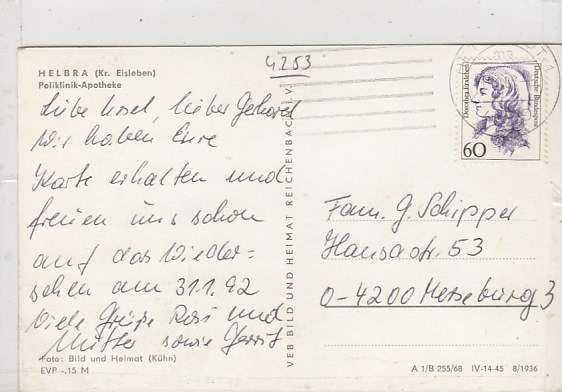 HELBRA (Kr. Eisleben)
Poliklinik-Apotheke
4253
Liebe Ursel, lieber Gerhard
Wir haben Eure
Karte erhalten und
freuen uns schon
auf das Wieder=
sehen am 31.1.92
Viele Grüße Rosi und
Mutter sowie Gerrit
Foto: Bild und Heimat (Kühn)
EVP -,15 M
VEB BILD UND HEIMAT REICHENBACH i. V.
Dorothea Erxleben
Deutsche Bundespost
60
Fam. G. Schipper
Hansastr. 53
O-4200 Merseburg 3
A 1/B 255/68 IV-14-45 8/1936